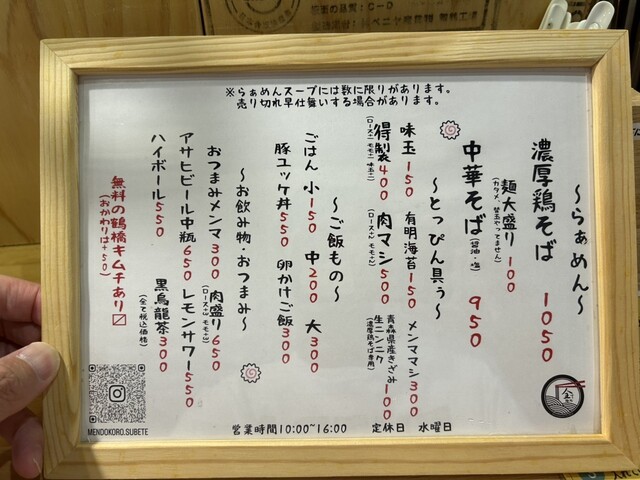 ※らぁめんスープには数に限りがあります。
売り切れ早仕舞いする場合があります。
〜らぁめん〜
濃厚鶏そば 1050
麺大盛り 100
(カタメ、替玉やってません)
中華そば(醤油・塩) 950
〜とっぴん具ぅ〜
味玉150 有明海苔150 メンママシ300
得製400 肉マシ500
(ロース+1 モモ+1 味玉+1) (ロース+2 モモ+2)
青森県産きざみ生ニンニク100
(濃厚鶏そば専用)
〜ご飯もの〜
ごはん 小150 中200 大300
豚ユッケ丼550 卵かけご飯300
〜お飲み物・おつまみ〜
おつまみメンマ300 肉盛り650
(ロース+3 モモ+3)
アサヒビール中瓶650 レモンサワー550
ハイボール550 黒烏龍茶300
(全て税込価格)
無料の鶴橋キムチあり〼
(おかわりは+50)
営業時間10:00~16:00 定休日 水曜日
MENDOKORO.SUBETE